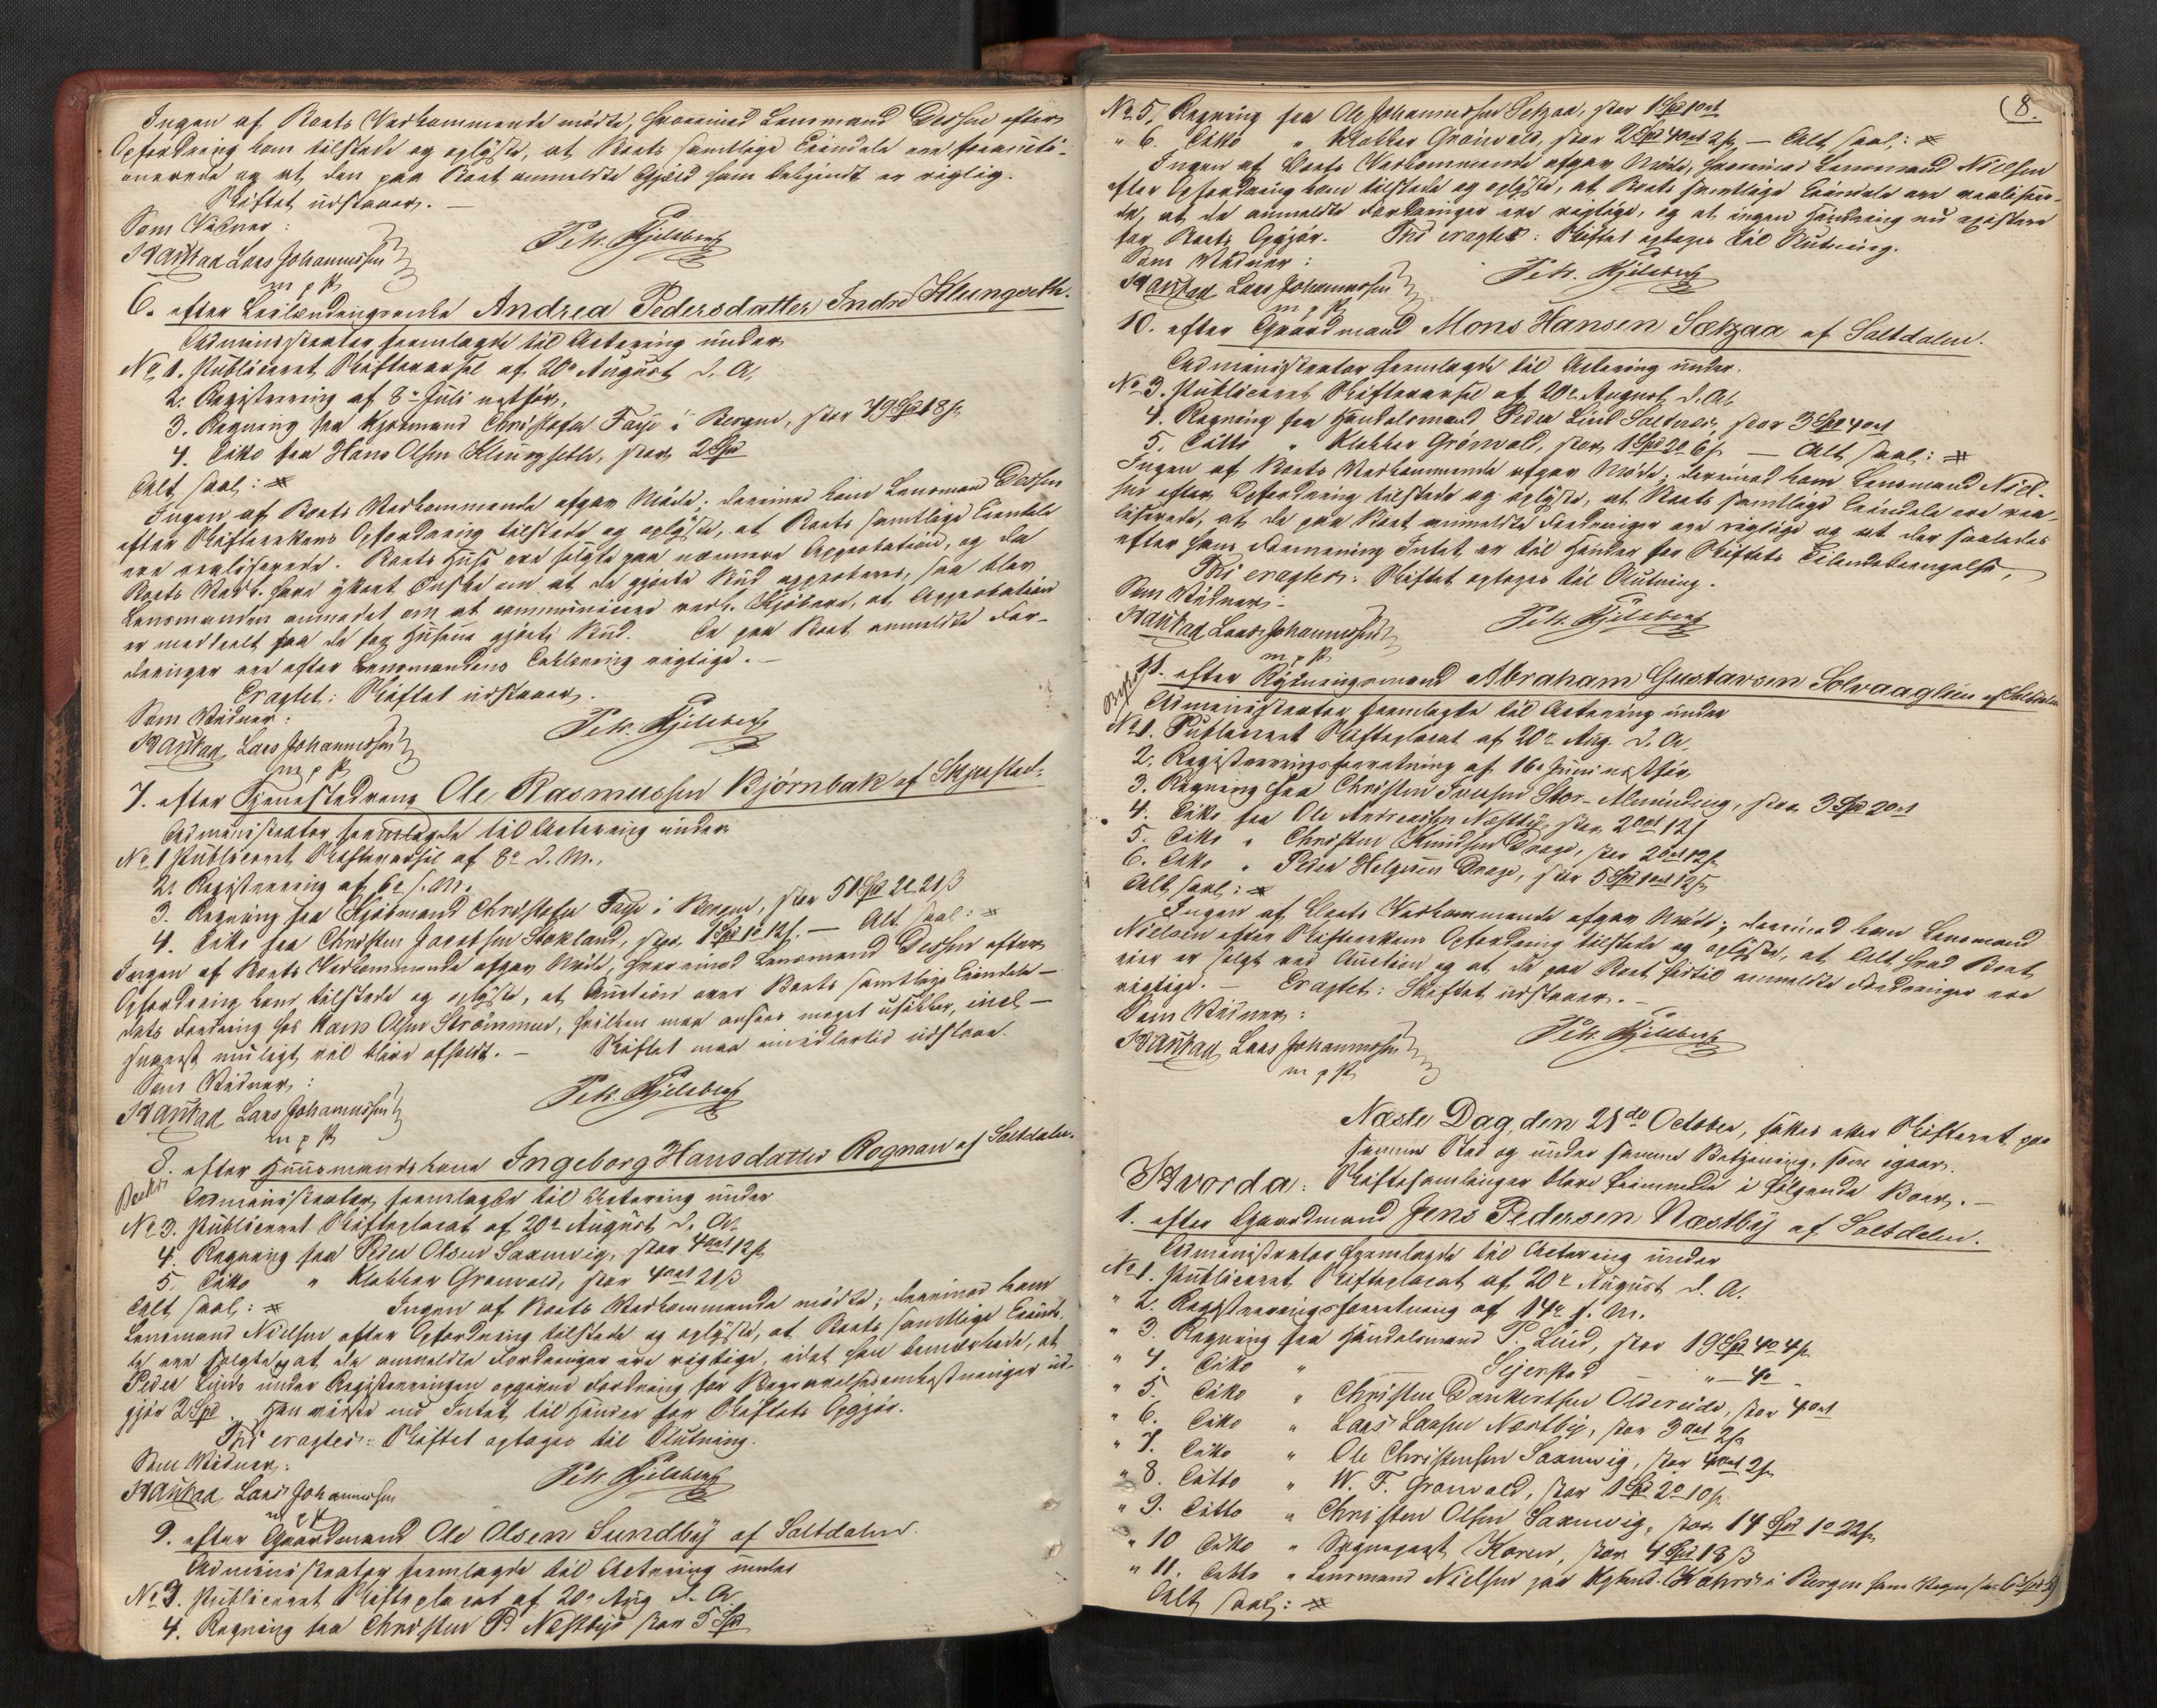 Ingen af Boets Vedkommende mødte, hvorimod Lensmand Dessen efter
Opfordring kom tilstede og oplyste, at Boets samtlige Eiendele ere foraucti-
onerede og at den paa Boet anmeldte Gjæld som bekjendt er rigtig.
Skiftet udstaaer. —
Som Vidner:
Haukad Lars Johannessen
m p P
Ptk. Kjelsberg
6. efter Leilændingsenke Andrea Pedersdatter Indre Klungseth.
Administrator fremlagde til Actering under
No 1. Publiceret Skiftevarsel af 20e August d. A.
2. Registrering af 8e Juli næstfør,
3. Regning fra Kjøbmand Christofer Faye i Bergen, stor 49 Spd 18 s.
4. Ditto fra Hans Olsen Klungseth, stor 2 Spd
Alt saal:
Ingen af Boets Vedkommende afgav Møde; derimod kom Lensmand Dessen
efter Skifterettens Opfordring tilstede og oplyste, at Boets samtlige Eiendele
ere realiserede. Boets Huse ere solgte paa nærmere Approbation, og da
Boets Vedk. have yttret Ønske om at de gjorte Bud approberes, saa blev
Lensmanden anmodet om at communicere vedk. Kjøbere, at Approbation
er meddeelt paa de for Husene gjorte Bud. De paa Boet anmeldte For-
dringer ere efter Lensmandens Erklæring rigtige. —
Eragtet: Skiftet udstaaer.
Som Vidner:
Haukad Lars Johannessen
m p P
Ptk. Kjelsberg
7. efter Tjenestedreng Ole Rasmussen Bjørnbak af Skjerstad.
Administrator fremlagde til Actering under
No 1 Publiceret Skiftevarsel af 8e d. M.,
2. Registrering af 6e s. M.
3. Regning fra Kjøbmand Christofer Faye i Bergen, stor 51 Spd 2 o 21 ß
4. Ditto fra Christen Jacobsen Stokland, stor 1 Spd 1 o 12 s. — Alt saal:
Ingen af Boets Vedkommende afgav Møde, hvorimod Lensmand Dessen efter
Opfordring kom tilstede og oplyste, at Auction over Boets samtlige Eiendele —
dets Fordring hos Hans Olsen Strømmen, hvilken man ansees meget usikker, incl —
snarest muligt vil blive afholdt. — Skiftet maa imidlertid udstaae.
Som Vidner:
Haukad Lars Johannessen
m p P
Ptk. Kjelsberg
8. efter Huusmandskone Ingeborg Hansdatter Rognan af Saltdalen.
Administrator fremlagde til Actering under
No 3. Publiceret Skifteplacat af 20e August d. A.
4. Regning fra Peder Olsen Saxenvig, stor 4 ort 12 s.
5. Ditto " Klokker Grønvold, stor 4 ort 21 ß
Alt saal: Ingen af Boets Vedkommende mødte; derimod kom
Lensmand Nielsen efter Opfordring tilstede og oplyste, at Boets samtlige Eiende-
le ere solgte og at de anmeldte Fordringer ere rigtige, idet han bemærkede, at
Peder Linds under Registreringen opgivne Fordring for Begravelsesomkostninger ud-
gjør 2 Spd. Han vidste nu Intet til Hinder for Skiftets Opgjør.
Thi eragtes: Skiftet optages til Slutning.
Som Vidner:
Haukad Lars Johannessen
m p P
Ptk. Kjelsberg
9. efter Gaardmand Ole Olsen Sundby af Saltdalen.
Administrator fremlagde til Actering under
No 3. Publiceret Skifteplacat af 20e Aug d. A.
4. Regning fra Christen P. Næstby stor 5 Spd
8.
No 5. Regning fra Ole Johannessen Setzaa, stor 1 Spd 1 ort
" 6. Ditto " Klokker Grønvold, stor 2 Spd 4 ort 2 s. — Alt saal:
Ingen af Boets Vedkommende afgav Møde, hvorimod Lensmand Nielsen
efter Opfordring kom tilstede og oplyste, at Boets samtlige Eiendele ere realisere-
de, at de anmeldte Fordringer ere rigtige, og at ingen Hindring nu existere
for Boets Opgjør. Thi eragtes: Skiftet optages til Slutning.
Som Vidner:
Haukad Lars Johannessen
m p P
Ptk. Kjelsberg
10. efter Gaardmand Mons Hansen Sætzaa af Saltdalen.
Administrator fremlagde til Actering under.
No 3. Publiceret Skiftevarsel af 20e August d. A.
4. Regning fra Handelsmand Peder Lind Saltnes, stor 3 Spd 4 ort
5. Ditto " Klokker Grønvold, stor 1 Spd 2 o 6 s. — Alt saal:
Ingen af Boets Vedkommende afgav Møde; derimod kom Lensmand Niel-
sen efter Opfordring tilstede og oplyste, at Boets samtlige Eiendele ere rea-
liserede, at de paa Boet anmeldte Fordringer ere rigtige og at der saaledes
efter hans Formening Intet er til Hinder for Skiftets Tilendebringelse,
Thi eragtes: Skiftet optages til Slutning.
Som Vidner:
Haukad Lars Johannessen
m p P
Ptk. Kjelsberg
11. efter Rydningsmand Abraham Gustavsen Solvaaglien af Saltdalen
Administrator fremlagde til Actering under
No 1. Publiceret Skifteplacat af 20e Aug. d. A.
2. Registreringsforretning af 16e Juni næstfør,
3. Regning fra Christen Stor-Almindning, stor 3 Spd 2 ort
4. Ditto fra Ole Andreassen Næstby, stor 2 ort 12 s
5. Ditto " Christen Knudsen Drage, stor 2 ort 12 s.
6. Ditto " Peder Helgesen Drage, stor 5 Spd 1 ort 12 s.
Alt saal:
Ingen af Boets Vedkommende afgav Møde; derimod kom Lensmand
Nielsen efter Skifterettens Opfordring tilstede og oplyste, at Alt hvad Boet
eier er solgt ved Auction og at de paa Boet hidtil anmeldte Fordringer ere
rigtige. — Eragtet: Skiftet udstaaer. —
Som Vidner:
Haukad Lars Johannessen
m p P
Ptk. Kjelsberg
Næste Dag, den 21de October, sattes atter Skifteret paa
samme Sted og under samme Betjening, som igaar.
Hvorda: Skiftesamlinger bleve fremmede i følgende Boer. —
1. efter Gaardmand Jens Pedersen Næstby af Saltdalen.
Administrator fremlagde til Actering under
No 1. Publiceret Skifteplacat af 20e August d. A.
" 2. Registreringsforretning af 14e s. M.
" 3. Regning fra Handelsmand P. Lind, stor 19 Spd 4 o 4 s.
" 4. Ditto " Sejersted — " — 4 o —
" 5. Ditto " Christen Dankertsen Oldereide, stor 4 ort
" 6. Ditto " Lars Larsen Næstby, stor 3 ort 2 s.
" 7. Ditto " Ole Christensen Saxenvig, stor 4 ort 2 s.
" 8. Ditto " W. F. Grønvold, stor 1 Spd 2 o 10 s.
" 9. Ditto " Christen Olsen Saxenvig, stor 14 Spd 1 o 22 s.
" 10 Ditto " Sognepræst Koren, stor 4 Spd 18 ß
" 11. Ditto " Lensmand Nielsen paa Kjbmd. i Bergen
Alt saal: